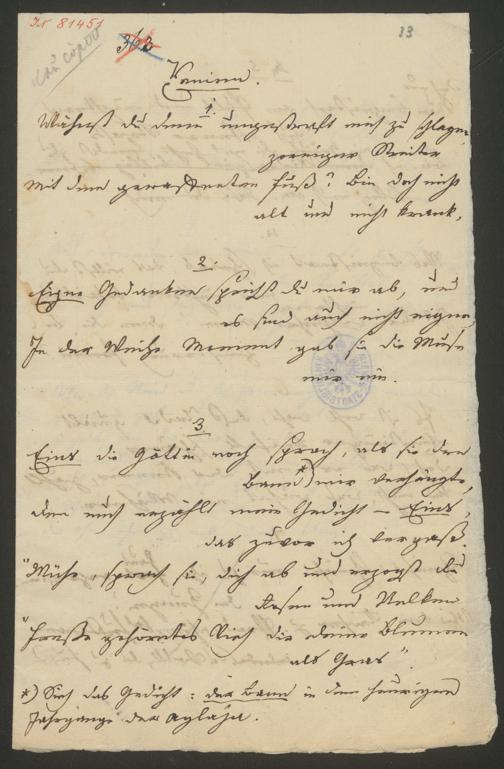 IN 81451
33
Xenien.
1.
Wähnst du denn ungestraft mich zu schlagen,
zorniger Reiter
Mit dem Fuß? Bin doch nicht
alt und nicht krank.
2.
Eigne Gedanken sprichst du mir ab, und
es sind auch nicht eigne,
In der Weihe Moment gab sie die Muse
mir ein.
3
Eins die Göttin noch sprach, als sie den
Bann*) mir verhängte,
den euch erzählt mein Gedicht – Eins,
das zuvor ich vergaß.
"Mühe, sprach sie, dich ab und erzogst du
Rosen und Nelken
"Fresse gehörntes Vieh dir deine Blumen
als Gras".
*) Sieh das Gedicht: der Bann in dem heurigen
Jahrgange der Aglaja.